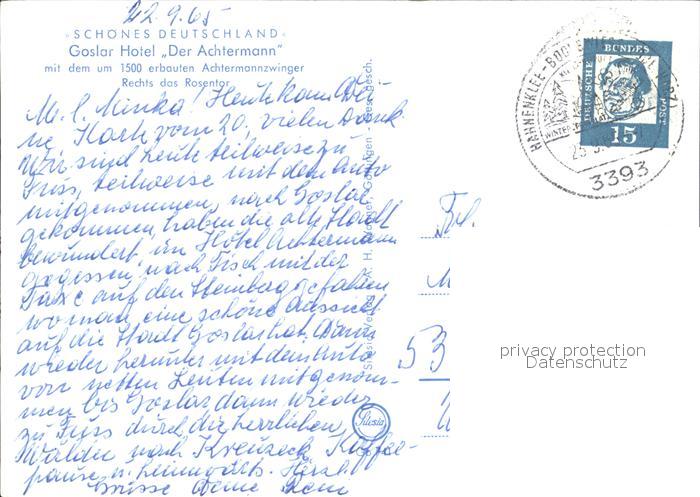 22.9.65
"SCHÖNES DEUTSCHLAND"
Goslar Hotel „Der Achtermann"
mit dem um 1500 erbauten Achtermannzwinger
Rechts das Rosentor
M. l. Minka! Heute kam Dei-
ne Karte vom 20., vielen Dank
Wir sind heute teilweise zu
Fuss, teilweise mit dem Auto
mitgenommen, nach Goslar
gekommen, haben die alte Stadt
bewundert, im Hotel Achtermann
gegessen, nach Tisch mit der
Taxe auf den Steinberg gefahren
wo man eine schöne Aussicht
auf die Stadt Goslar hat. Dann
wieder herunter mit dem Auto
von netten Leuten mitgenom-
men bis Goslar dann wieder
zu Fuss durch die herrlichen
Wälder nach Kreuzeck Kaffee-
pause u. heimwärts. Herzl.
Grüsse Deine
Frl.
M
53
Silesia
HAHNENKLEE-BOCKSWIESE
WINTER
3393
DEUTSCHE
BUNDES
POST
15
privacy protection
Datenschutz